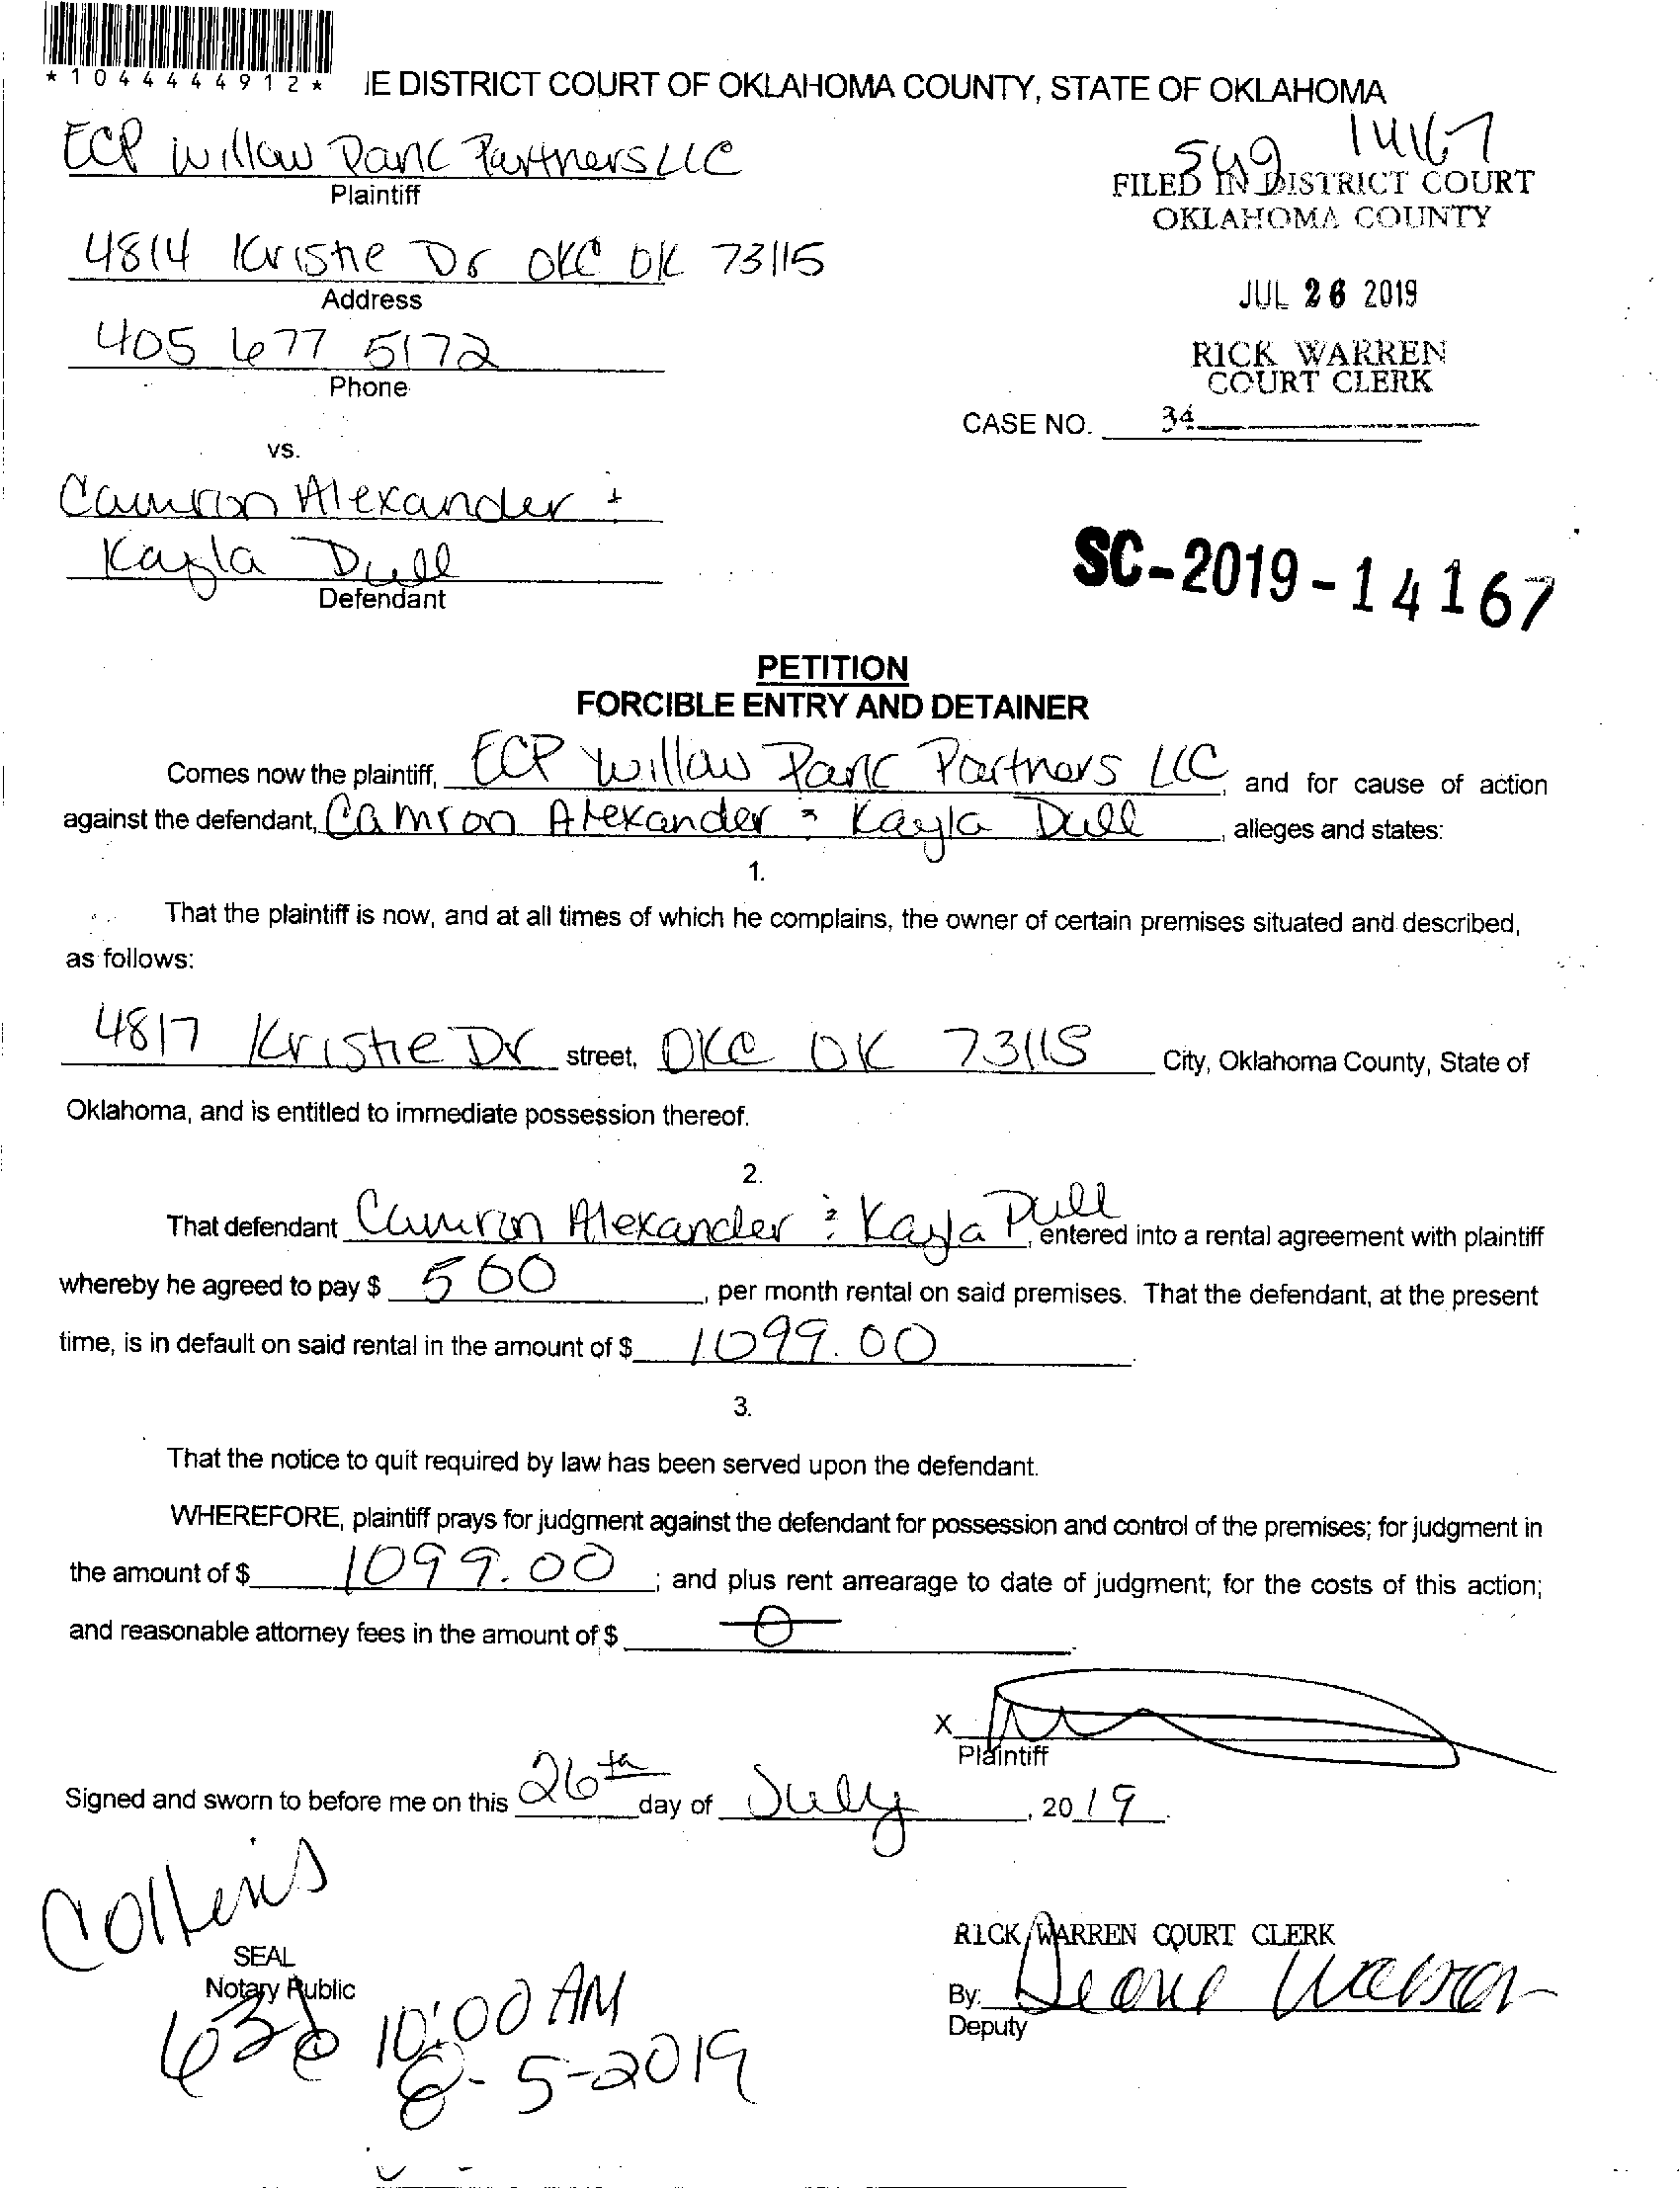 *1044444912*
IE DISTRICT COURT OF OKLAHOMA COUNTY, STATE OF OKLAHOMA
ECP Willow Park Partners LLC
Plaintiff
14167
FILED IN DISTRICT COURT
OKLAHOMA COUNTY
4814 Kristie Dr OKC OK 73115
Address
JUL 26 2019
405 677 5172
Phone
RICK WARREN
COURT CLERK
CASE NO. 34
vs.
Camron Alexander &
Kayla Dull
Defendant
SC-2019-14167
PETITION
FORCIBLE ENTRY AND DETAINER
Comes now the plaintiff, ECP Willow Park Partners LLC, and for cause of action
against the defendant, Camron Alexander & Kayla Dull, alleges and states:
1.
That the plaintiff is now, and at all times of which he complains, the owner of certain premises situated and described,
as follows:
4817 Kristie Dr street, OKC OK 73115 City, Oklahoma County, State of
Oklahoma, and is entitled to immediate possession thereof.
2.
That defendant Camron Alexander & Kayla Dull, entered into a rental agreement with plaintiff
whereby he agreed to pay $ 560, per month rental on said premises. That the defendant, at the present
time, is in default on said rental in the amount of $ 1099.00.
3.
That the notice to quit required by law has been served upon the defendant.
WHEREFORE, plaintiff prays for judgment against the defendant for possession and control of the premises; for judgment in
the amount of $ 1099.00; and plus rent arrearage to date of judgment; for the costs of this action;
and reasonable attorney fees in the amount of $ 0.
X
Plaintiff
Signed and sworn to before me on this 26th day of July, 2019.
Collins
SEAL
Notary Public
RICK WARREN COURT CLERK
By:
Deputy
10:00 AM
8-5-2019